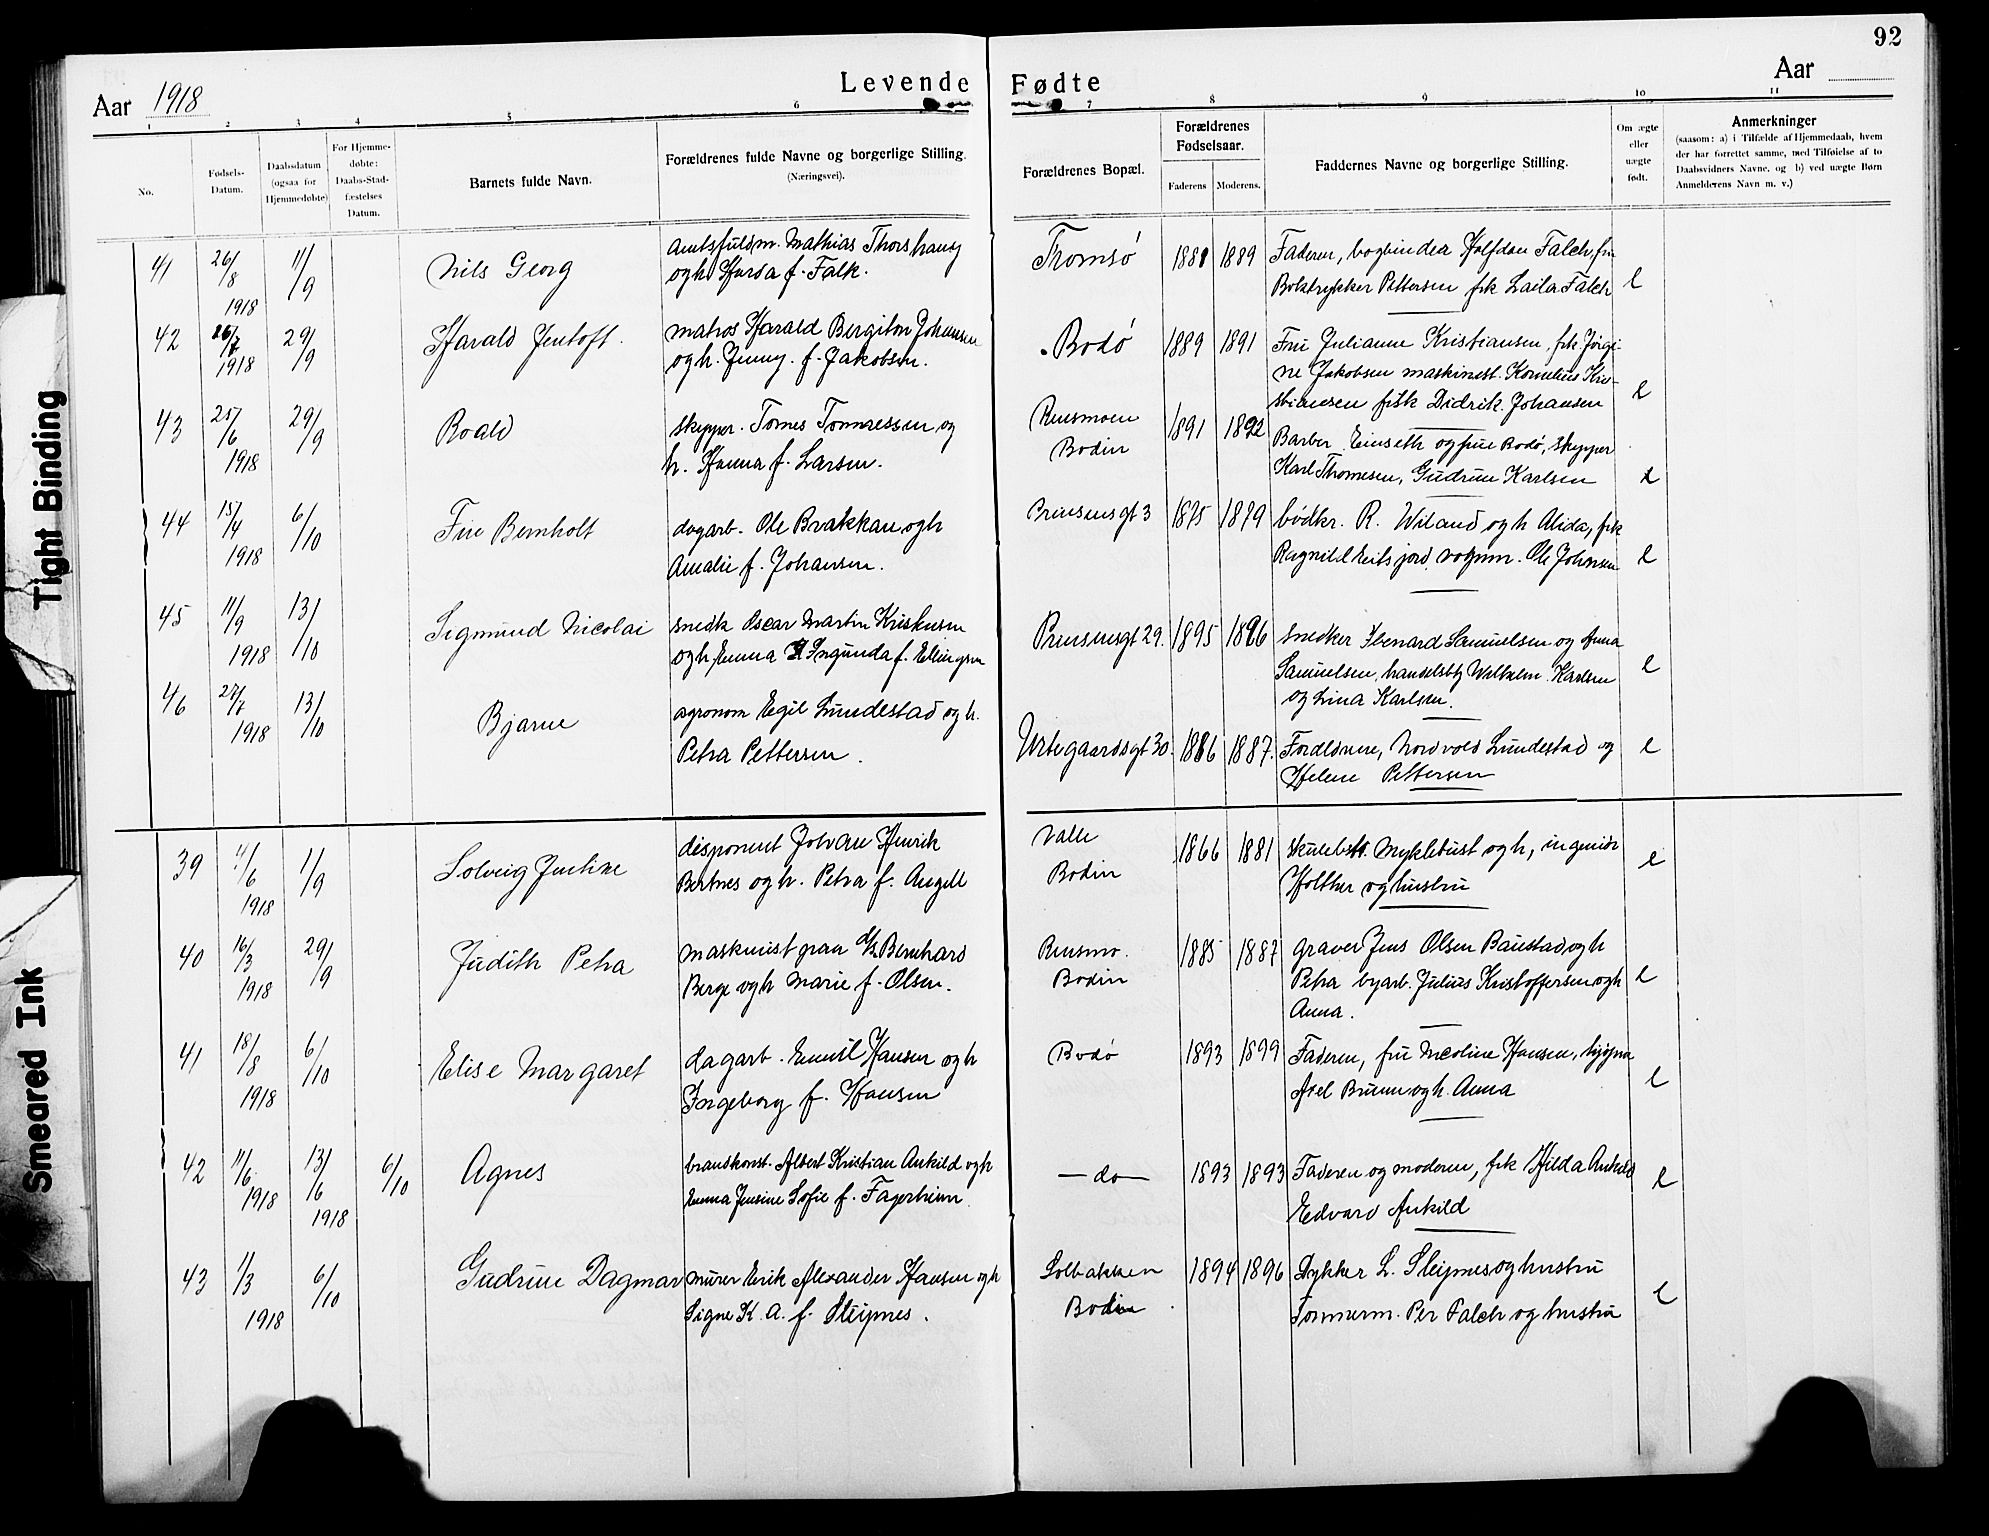 92
Levende Fødte
Aar 1918
Aar
1 2 3 4 5 6 7 8 9 10 11
No.
Fødsels-
Datum.
Daabsdatum
(ogsaa for
Hjemmedøbte)
For Hjemme-
døbte:
Daabs-Stad-
fæstelses
Datum.
Barnets fulde Navn.
Forældrenes fulde Navne og borgerlige Stilling.
(Næringsvei).
Forældrenes Bopæl.
Forældrenes
Fødselsaar.
Faderens Moderens.
Faddernes Navne og borgerlige Stilling.
Om ægte
eller
uægte
født.
Anmerkninger
(saasom: a) i Tilfælde af Hjemmedaab, hvem
der har forrettet samme, med Tilføielse af to
Daabsvidners Navne, og b) ved uægte Børn
Anmelderens Navn m. v.)
41 26/8 1918 11/9 Nils Georg
Amtsfuldm. Mathias Thorshaug
og h. f. Falk.
Tromsø 1881 1889
Faderen, bogbinder Halfdan Falch, fru
Boktrykker Pettersen frk Laila Falch
e
42 26/7 1918 29/9 Harald Jentoft.
matros Harald Bergiton Johansen
og h. Jenny. f. Jakobsen.
Bodø 1889 1891
Fru Julianne Kristiansen, frk. Jørgi-
ne Jakobsen maskinest. Kornelius Kri-
stiansen fisk Didrik Johansen
e
43 25/6 1918 29/9 Roald
skipper. Tomes Tomassen og
h. Hanna f. Larsen.
Rensmoen
Bodin
1891 1892
Barber Einseth og frue Bodø, skipper
Karl Thomesen, Gudrun Karlsen
e
44 15/4 1918 6/10 Finn Bernholt
dagarb. Ole Brakkan og h
Amalie f. Johansen.
Prinsensgt 3 1875 1879
bødkr. R. Wiland og h Alida, frk
Ragnild jord, vognm. Ole Johansen
e
45 11/9 1918 13/10 Sigmund Nicolai
snedk Oscar Martin Kristensen
og h Emma Ingunda f. Ellingsen
Prinsensgt 29. 1895 1896
snedker Samuelsen og Anna
Samuelsen, handelsbtj Wilhelm Karlsen
og Lina Karlsen.
e
46 27/7 1918 13/10 Bjarne
agronom Egil Lundestad og h.
Petra Pettersen.
Urtegaardsgt 30. 1886 1887.
Forældrene, Nordvold Lundestad og
Helene Pettersen
e
39 4/6 1918 1/9 Solveig Justine
disponent Johan Henrik
Bertnes og h. Petra f. Angell
Valle
Bodin
1866 1881
skulebst. Myklebust og h, ingeniør
Holther og hustru
e
40 16/3 1918 29/9 Judith Petra
maskinist paa Bernhard
Berge og h Marie f. Olsen.
Rensmo.
Bodin
1885 1887
graver Jens Olsen Baustad og h
Petra byarb. Julius Kristoffersen og h
Anna.
e
41 18/8 1918 6/10 Elise Margaret
dagarb. Emil Hansen og h
Ingeborg f. Hansen
Bodø 1893 1899
Faderen, fru Nicoline Hansen,
Axel Bruun og h. Anna
e
42 11/6 1918 13/6 1918 6/10 Agnes
brandkonst. Albert Kristian Ankild og h
Emma Jensine Sofie f. Fagerheim
— do — 1893 1893
Faderen og moderen, frk Hilda Ankild
Edvard Ankild
e
43 1/3 1918 6/10 Gudrun Dagmar
murer Erik Alexander Hansen og h
Signe K. A. f. Sleipnes.
Solbakken
Bodin
1894 1896
Dykker L. Sleipnes og hustru
Tømmerm. Per Falch og hustru
e
Tight Binding
Smeared Ink